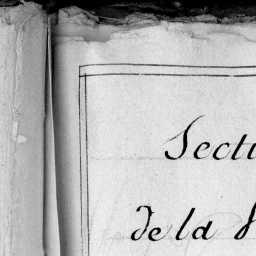 Secti
de la